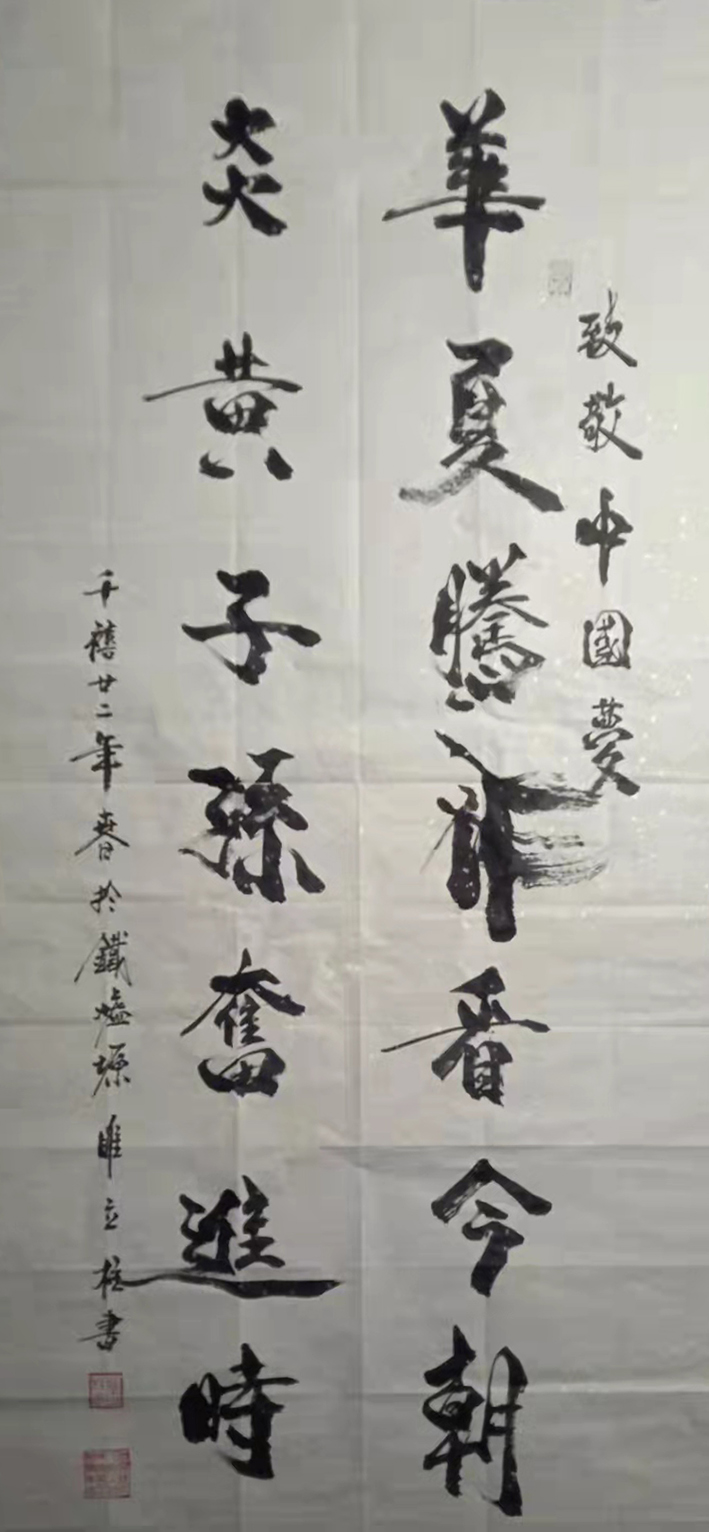 致敬中國夢
華夏騰飛看今朝
炎黃子孫奮進時
千禧廿二年春於鐵爐塬雎立柱書